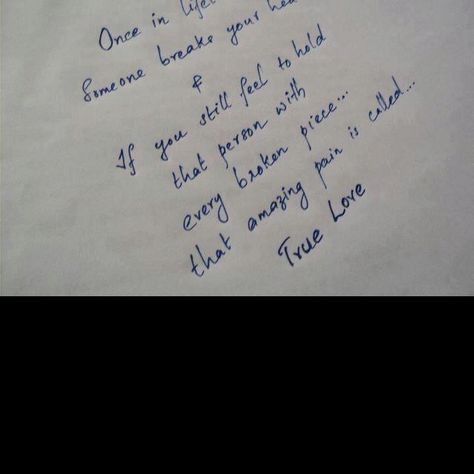 Once in life
Someone breake your hea
&
If you still feel to hold
that person with
every broken piece...
that amazing pain is called...
True Love